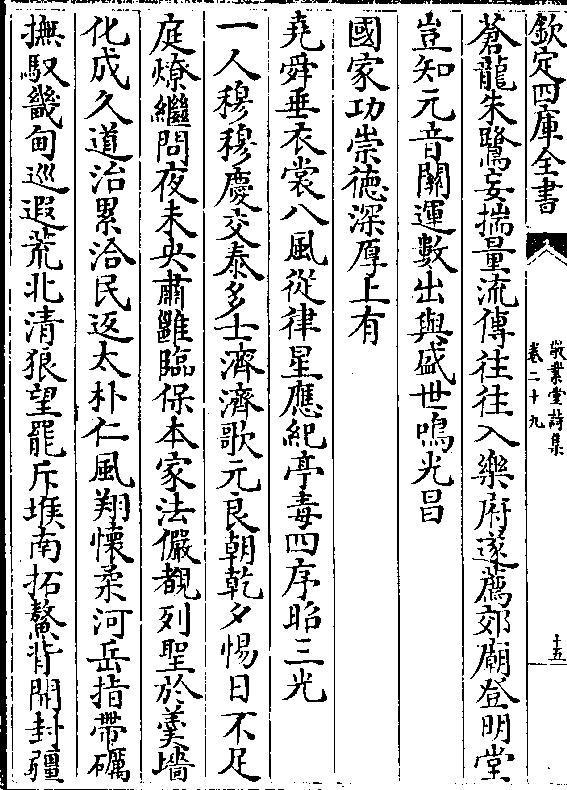 欽定四庫全書
敬業堂詩集
卷二十九
十五
蒼龍朱鷺妄揣量流傳往往入樂府遂薦郊廟登明堂
豈知元音關運數出與盛世鳴光昌
國家功崇德深厚上有
堯舜垂衣裳八風從律星應紀亭毒四序昭三光
一人穆穆慶交泰多士濟濟歌元良朝乾夕惕日不足
庭燎繼問夜未央肅雝臨保本家法儼覩列聖於羮墻
化成久道治累洽民返太朴仁風翔懷柔河岳指帶礪
撫馭畿甸巡遐荒北清狼望罷斥堠南拓鰲背開封疆